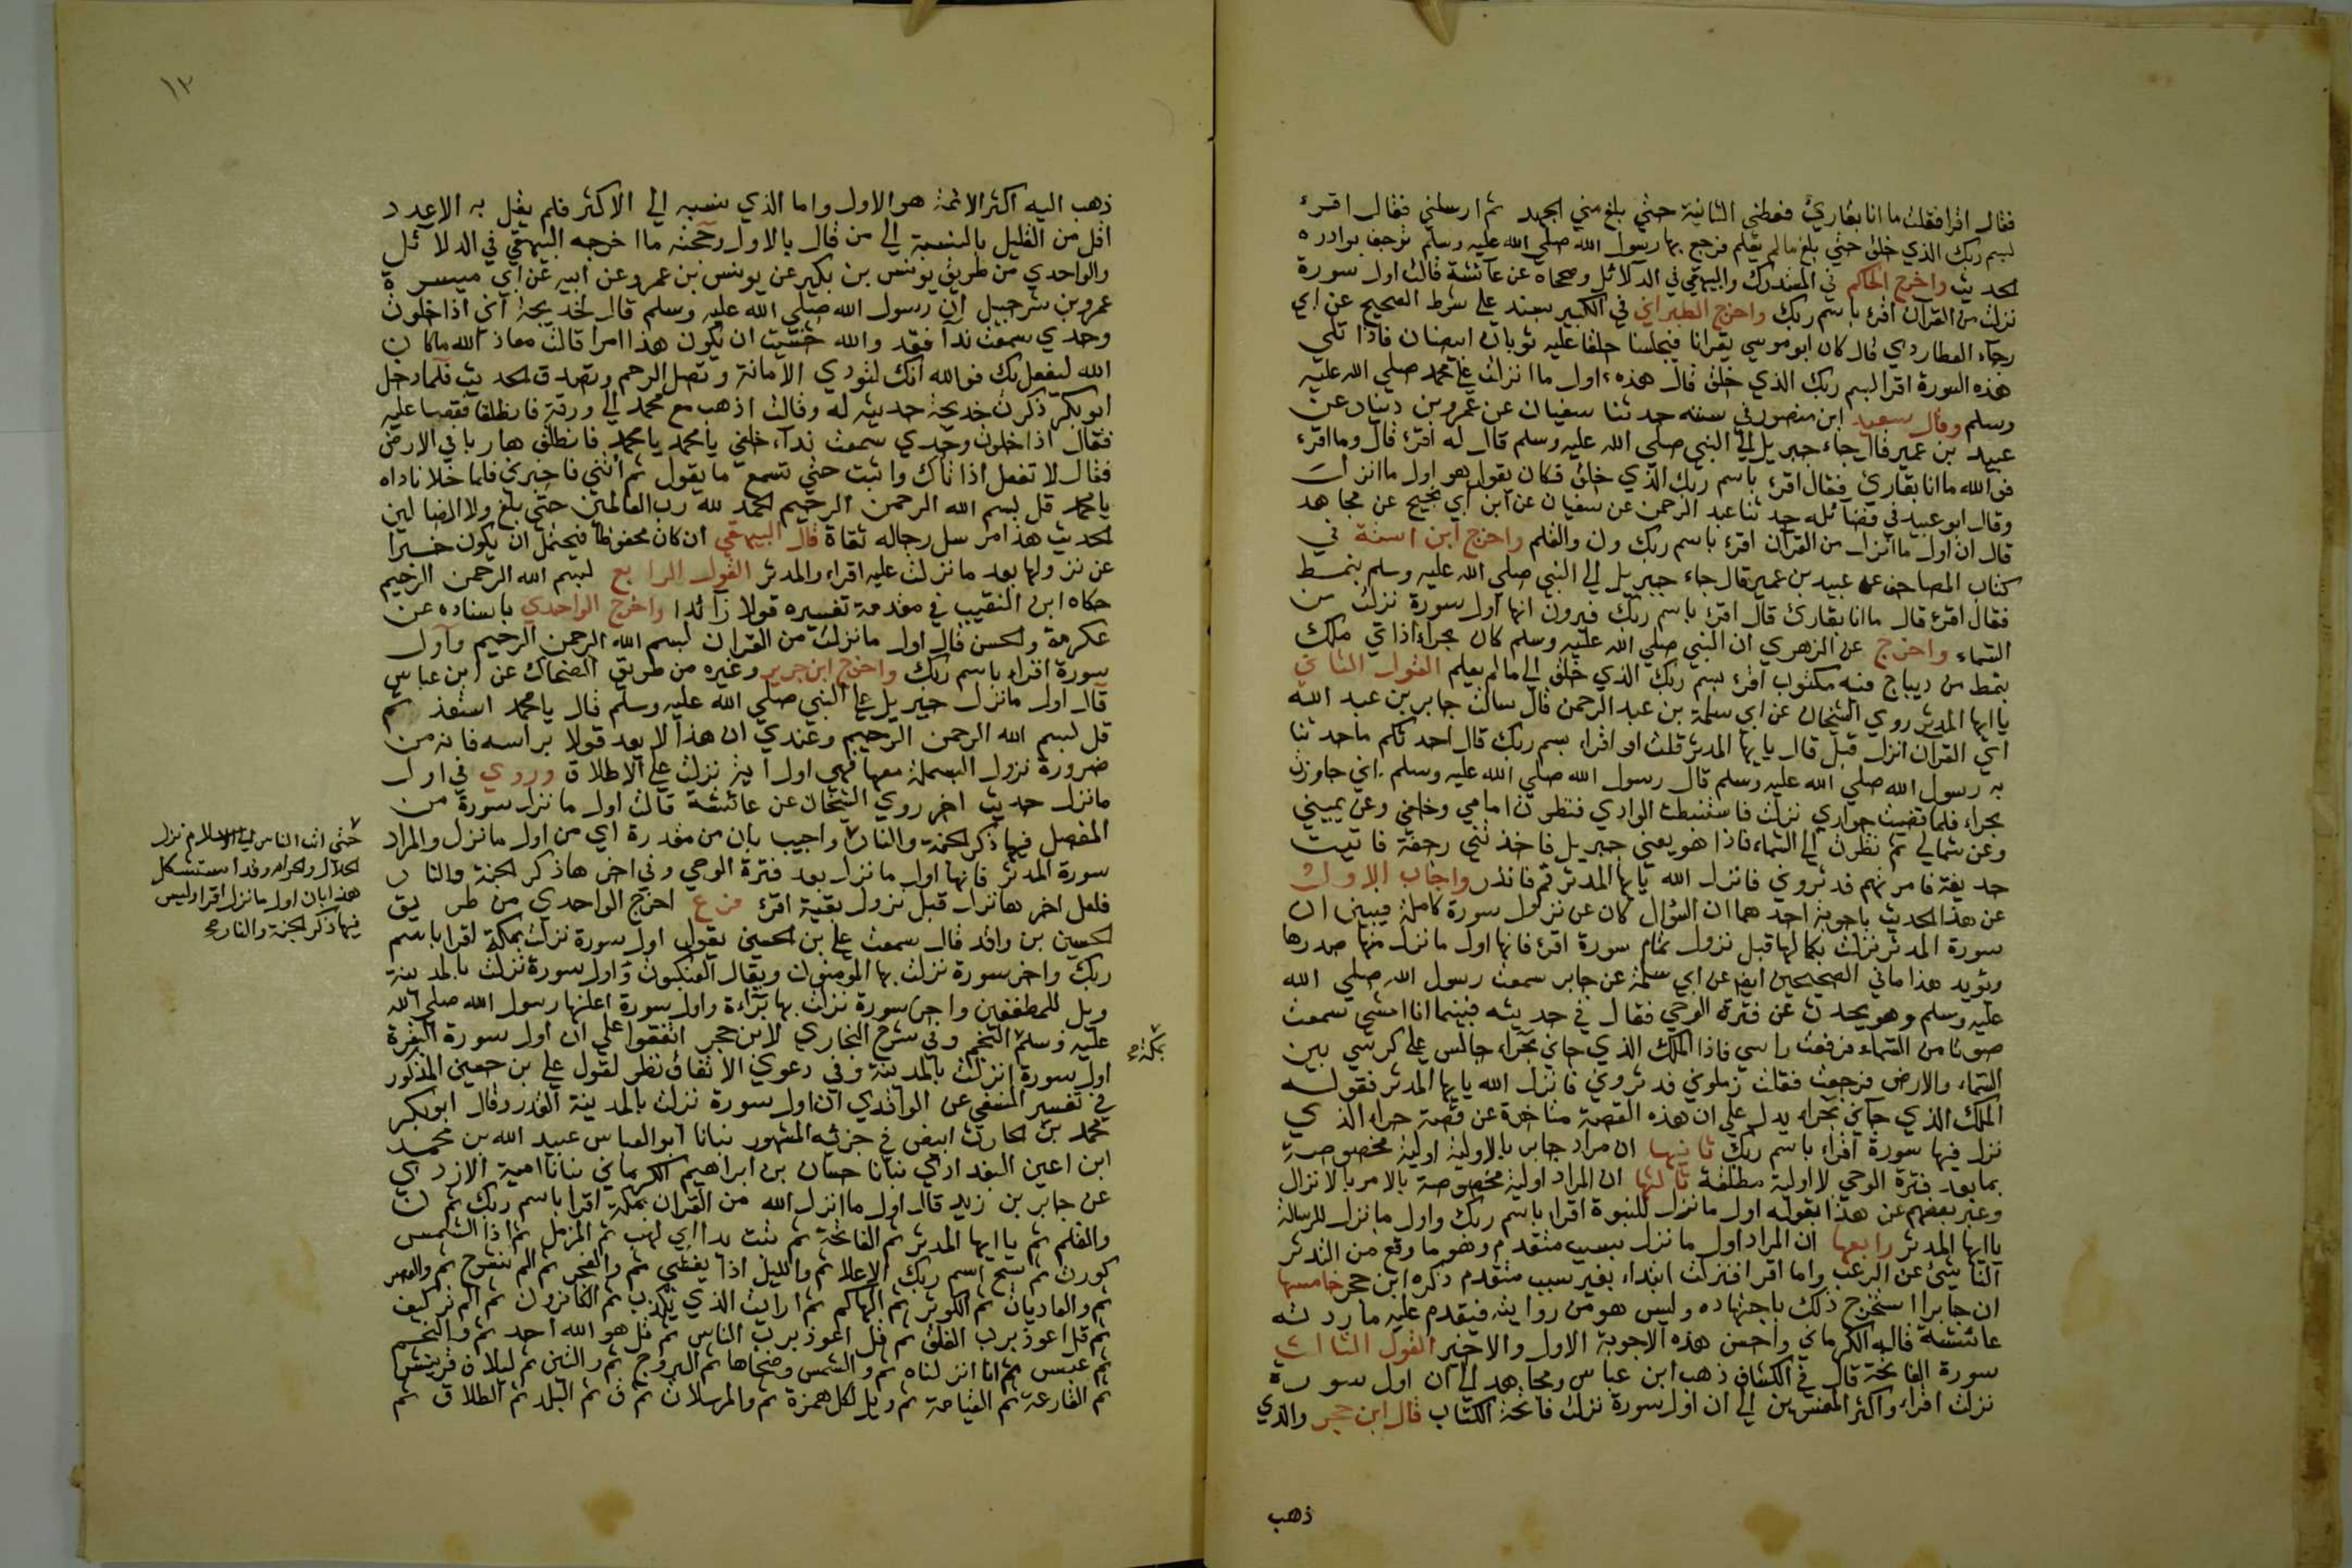 فقال اقرا فقلت ما انا بقارئ فغطني الثانية حتي بلغ مني الجهد ثم ارسلني فقال اقرء
لبسم ربك الذي خلق حتي بلغ مالم يعلم فرجع بها رسول الله صلي الله عليه وسلم ترجف بوادره
لحديث واخرج الحاكم في المستدرك والبيهقي في الدلائل وصححاه عن عائشة قالت اول سورة
نزلت من القرآن اقرء باسم ربك واخرج الطبراني في الكبير بسند علي شرط الصحيح عن ابي
رجاء العطاردي قال كان ابو موسي يقرانا فيجلسنا حلقا عليه ثوبان ابيضان فاذا تلي
هذه السورة اقرا بسم ربك الذي خلق قال هذه اول ما انزلت علي محمد صلي الله عليه
وسلم وقال سعيد ابن منصور في سننه حدثنا سفيان عن عمرو بن دينار عن
عبيد بن عمير قال جاء جبريل الي النبي صلي الله عليه وسلم قال له اقرء قال وما اقرء
فوالله ما انا بقارئ فقال اقرء باسم ربك الذي خلق فكان يقول هو اول ما انزلت
وقال ابو عبيد في فضائله حدثنا عبد الرحمن عن سفيان عن ابن ابي نجيح عن مجاهد
قال ان اول ما انزل من القرآن اقرء باسم ربك ون والقلم واخرج ابن اسنة في
كتاب المصاحف عن عبيد بن عمير قال جاء جبريل الي النبي صلي الله عليه وسلم بنمط
فقال اقرء قال ما انا بقارئ قال اقرء باسم ربك فيرون انها اول سورة نزلت من
السماء واخرج عن الزهري ان النبي صلي الله عليه وسلم كان بحراء اذاتي ملك
بنمط من ديباج فيه مكتوب اقرء بسم ربك الذي خلق الي مالم يعلم القول الثاني
ياايها المدثر روي الشيخان عن ابي سلمة بن عبد الرحمن قال سالت جابر بن عبد الله
اي القران انزل قبل قال يايها المدثر قلت او اقراء بسم ربك قال احدثكم ماحدثنا
به رسول الله صلي الله عليه وسلم قال رسول الله صلي الله عليه وسلم اني جاورت
بحراء فلما قضيت جواري نزلت فاستبطنت الوادي فنظرت امامي وخلفي وعن يميني
وعن شمالي ثم نظرت الي السماء فاذا هو يعني جبريل فاخذتني رجفة فاتيت
خديجة فامرتهم فدثروني فانزل الله يايها المدثر قم فانذر واجاب الاول
عن هذا الحديث باجوبة احدهما ان السؤال كان عن نزول سورة كاملة فيبين ان
سورة المدثر نزلت بكمالها قبل نزول تمام سورة اقرء فانها اول ما نزل منها صدرها
ويؤيد هذا ما في الصحيحين ايضا عن ابي سلمة عن جابر سمعت رسول الله صلي الله
عليه وسلم وهو يحدث عن فترة الوحي فقال في حديثه فبينما انا امشي سمعت
صوتا من السماء فرفعت راسي فاذا الملك الذي جاني بحراء جالس علي كرسي بين
السماء والارض فرجعت فقلت زملوني فدثروني فانزل الله يايها المدثر فقوله
الملك الذي جآني بحراء يدل علي ان هذه القصة متاخرة عن قصة حراء الذي
نزل فيها سورة اقراء باسم ربك ثانيها ان مراد جابر بالاولية اولية مخصوصة
بما بعد فترة الوحي لا اولية مطلقة ثالثها ان المراد اولية مخصوصة بالامر بالانزال
وعبر بعضهم عن هذا بقوله اول ما نزل للنبوة اقراء باسم ربك واول ما نزل للرسالة
ياايها المدثر رابعها ان المراد اول ما نزل بسبب متقدم وهو ما وقع من التدثر
الناشئ عن الرعب واما اقرا فنزلت ابتداء بغير سبب متقدم ذكره ابن حجر خامسها
ان جابرا استخرج ذلك باجتهاده وليس هو من روايته فيقدم عليه ما ردته
عائشة قاله الكرماني واحسن هذه الاجوبة الاول والاخير القول الثالث
سورة الفاتحة قال في الكشاف ذهب ابن عباس ومجاهد الي ان اول سورة
نزلت اقراء واكثر المفسرين الي ان اول سورة نزلت فاتحة الكتاب قال ابن حجر والذي
ذهب
١٢
ذهب اليه اكثر الائمة هو الاول واما الذي ينسبه الي الاكثر فلم يقل به الاعدد
اقل من القليل بالنسبة الي من قال بالاول وحجته ما اخرجه البيهقي في الدلائل
والواحدي من طريق يونس بن بكير عن يونس بن عمرو عن ابيه عن ابي ميسرة
عمرو بن شرحبيل ان رسول الله صلي الله عليه وسلم قال لخديجة اني اذا خلوت
وحدي سمعت ندآ فقد والله خشيت ان يكون هذا امرا قالت معاذ الله ماكان
الله ليفعل بك فوالله انك لتؤدي الامانة وتصل الرحم وتصدق الحديث فلما دخل
ابوبكر ذكرت خديجة حديثه له وقالت اذهب مع محمد الي ورقة فانطلقا فقصا عليه
فقال اذا خلوت وحدي سمعت نداء خلفي يا محمد يا محمد فانطلق هاربا في الارض
فقال لا تفعل اذا اتاك واثبت حتي تسمع ما يقول ثم أتني فاخبرني فلما خلا ناداه
يا محمد قل بسم الله الرحمن الرحيم الحمد لله رب العالمين حتي بلغ ولا الضالين
الحديث هذا مرسل رجاله ثقاة قال البيهقي ان كان محفوظا فيحتمل ان يكون خبرا
عن نزولها بعد ما نزلت عليه اقراء والمدثر القول الرابع لبسم الله الرحمن الرحيم
حكاه ابن النقيب في مقدمة تفسيره قولا زائدا واخرج الواحدي باسناده عن
عكرمة والحسن قال اول ما نزلت من القران لبسم الله الرحمن الرحيم وآول
سورة اقراء باسم ربك واخرج ابن جرير وغيره من طريق الضحاك عن ابن عباس
قال اول ما نزل جبريل علي النبي صلي الله عليه وسلم قال يا محمد استعذ ثم
قل لبسم الله الرحمن الرحيم وعندي ان هذا لا يعد قولا براسه فانه من
ضرورة نزول البسملة معها فهي اول اية نزلت علي الاطلاق وروي في اول
مانزل حديث اخر روي الشيخان عن عائشة قالت اول ما نزل سورة من
المفصل فيها ذكر الجنة والنار واجيب بان من مقدرة اي من اول ما نزل والمراد
سورة المدثر فانها اول ما نزل بعد فترة الوحي وفي اخرها ذكر الجنة والنار
فلعل اخرها نزل قبل نزول بقية اقرء فرع اخرج الواحدي من طريق
الحسين بن واقد قال سمعت علي بن الحسين يقول اول سورة نزلت بمكة اقرا باسم
ربك واخر سورة نزلت بها المومنون ويقال العنكبوت واول سورة نزلت بالمدينة
ويل للمطففين واخر سورة نزلت بها برآءة واول سورة اعلنها رسول الله صلي الله
عليه وسلم النجم وفي شرح البخاري لابن حجر اتفقوا علي ان اول سورة البقرة
اول سورة انزلت بالمدينة وفي دعوي الاتفاق نظر لقول علي بن حسين المذكور
في تفسير النسفي عن الواقدي ان اول سورة نزلت بالمدينة القدر وقال ابوبكر
محمد بن الحارث ابيض في جزئه المشهور نبانا ابو العباس عبيد الله بن محمد
ابن اعين البغدادي نبانا حسان بن ابراهيم الكرماني نبانا امية الازدي
عن جابر بن زيد قال اول ما انزل الله من القران بمكة اقرا باسم ربك ثم ن
والقلم ثم ياايها المدثر ثم الفاتحة ثم تبت يدا ابي لهب ثم المزمل ثم اذا الشمس
كورت ثم سبح اسم ربك الاعلا ثم والليل اذا يغشي ثم والفجر ثم الم نشرح ثم والعصر
ثم والعاديات ثم الكوثر ثم الهاكم ثم ارايت الذي يكذب ثم الكافرون ثم الم تر كيف
ثم قل اعوذ برب الفلق ثم قل اعوذ برب الناس ثم قل هو الله احد ثم والنجم
ثم عبس ثم انا انزلناه ثم والشمس وضحاها ثم البروج ثم والتين ثم ليلاف قريش
ثم القارعة ثم القيامة ثم ويل لكل همزة ثم والمرسلات ثم ق ثم البلد ثم الطلاق ثم
حتي اذا ثاب الناس الي الاسلام نزل
الحلال والحرام وقد استشكل
هذا بان اول ما نزل اقرا وليس
فيها ذكر الجنة والنار صح
بمكة صح